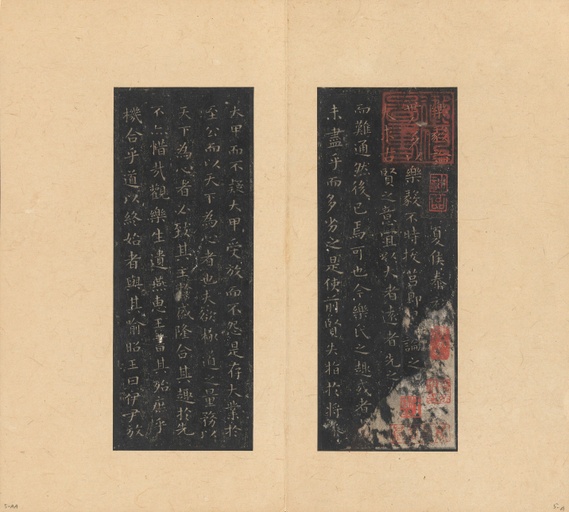 夏侯泰
樂毅不時拔莒即 論之
賢之意宜以大者遠者先
而難通然後已焉可也今樂氏之趣或者
未盡乎而多劣之是使前賢失指於將
大甲而不疑大甲受放而不怨是存大業於
至公而以天下為心者也夫欲極道之量務以
天下為心者必致其主於盛隆合其趣於先
不亦惜哉觀樂生遺燕惠王書其殆庶乎
機合乎道以終始者與其喻昭王曰伊尹放